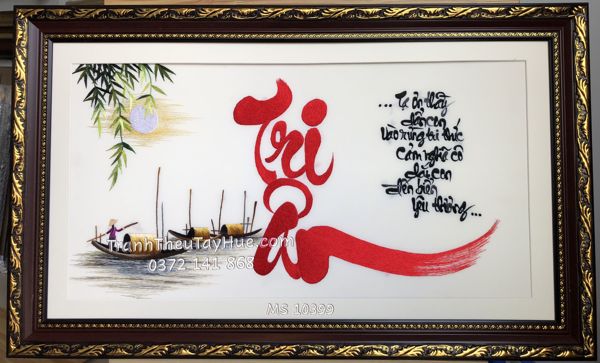 Tri
Ân
... Tạ ơn thầy
dẫn con
vào rừng tri thức
Cảm nghĩa cô
dắt con
đến biển
yêu thương ...
TranhTheuTayHue.com
0372 141 868
MS 10399